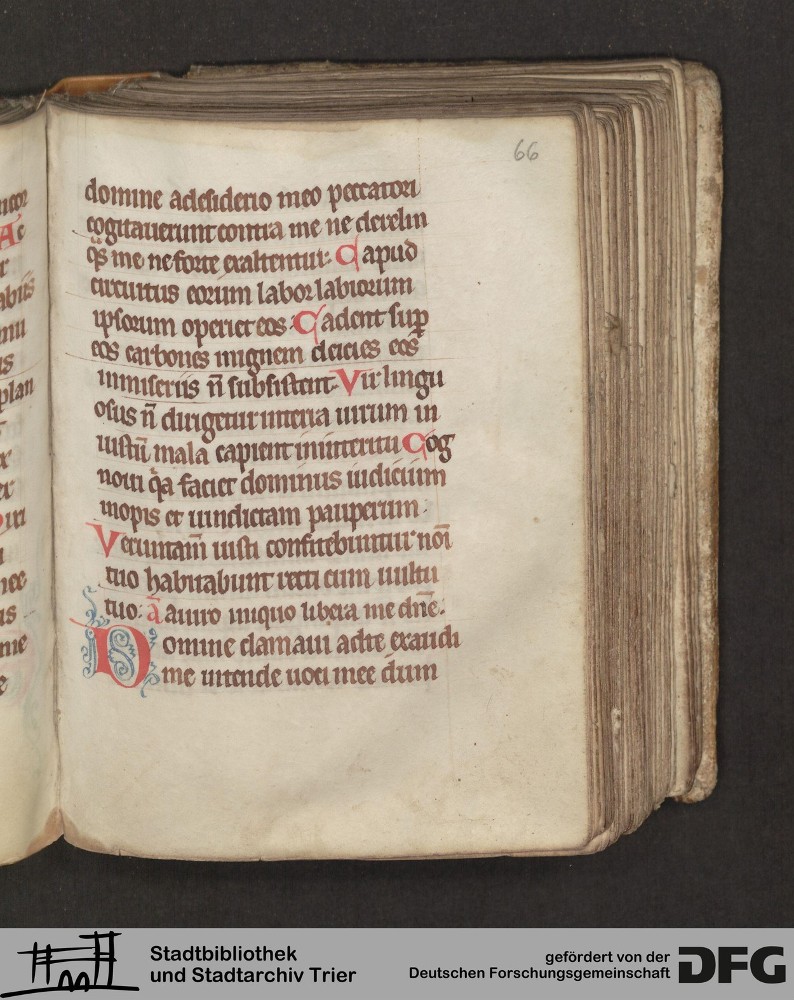 66
domine adesiderio meo peccatori
cogitauerunt contra me ne derelin
q̃s me ne forte exaltentur. Capud
circuitus eorum labor labiorum
ipsorum operiet eos. Cadent sup̱
eos carbones in ignem deicies eos
in miseriis n̄ subsistent. Vir lingu
osus n̄ dirigetur in terra uirum in
iustū mala capient in interitu Cog
noui q̇a faciet dominus iudicium
inopis et uindictam pauperum.
Veruntam̄ iusti confitebuntur nōi
tuo habitabunt recti cum uultu
tuo. ā a uiro iniquo libera me dn̄e.
Domine clamaui ad te exaudi
me intende uoci mee dum
Stadtbibliothek
und Stadtarchiv Trier
gefördert von der
Deutschen Forschungsgemeinschaft
DFG